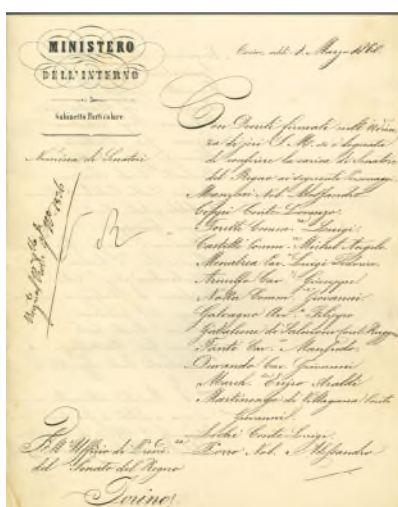 MINISTERO
DELL'INTERNO
Gabinetto Particolare
Torino, addì 1 Marzo 1860.
Nomina di Senatori
Con Decreti firmati nell'udienza
di jeri S. M. si è degnata
di conferire la carica di Senatore
del Regno ai seguenti Personaggi
Manzoni Nob. Alessandro
Conte Lorenzo
Torelli Comm. Luigi
Castelli Comm. Michel Angelo
Menabrea Cav. Luigi Federico
Arnulfo Cav. Giuseppe
Notta Comm. Giovanni
Galvagno Avv. Filippo
Gabaleone di Salmour Conte Ruggero
Fanti Cav. Manfredo
Durando Cav. Giovanni
March. Araldi
Martinengo di Villagana Conte
Giovanni
Lochi Conte Luigi
Porro Nob. Alessandro
All'Uffizio di
del Senato del Regno
Torino